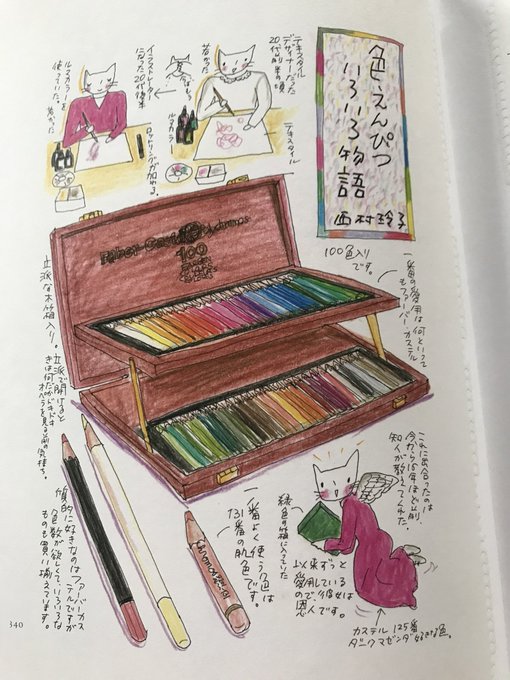 色えんぴつ
いろいろ物語
西村玲子
テキスタイル
デザイナーだった
20代前半の頃
若かった
テキスタイル
ルマカラー
イラストレーター
になった20代後半
ロットリングが加わる。
ルマカラーを
使っていた。
若かった
100色入り
です。
一番の愛用は何といって
もファーバーカステル
Faber-Castell
100
立派な木箱入り。
立派で開けると
きは何だかドキドキ
オペラを見る前の気持ち。
これに出会ったのは
今から15年ほど前、
知人が教えてくれた。
緑色の箱に入っていた
以来ずっと
愛用している
ので彼女は
恩人です。
一番よく使う色は
131番の肌色です。
質的に好きなのはファーバーカス
テルですが
色数が欲しくていろいろな
ものも買い揃えています。
カステル125番
ダークマゼンダ好きな色。
340